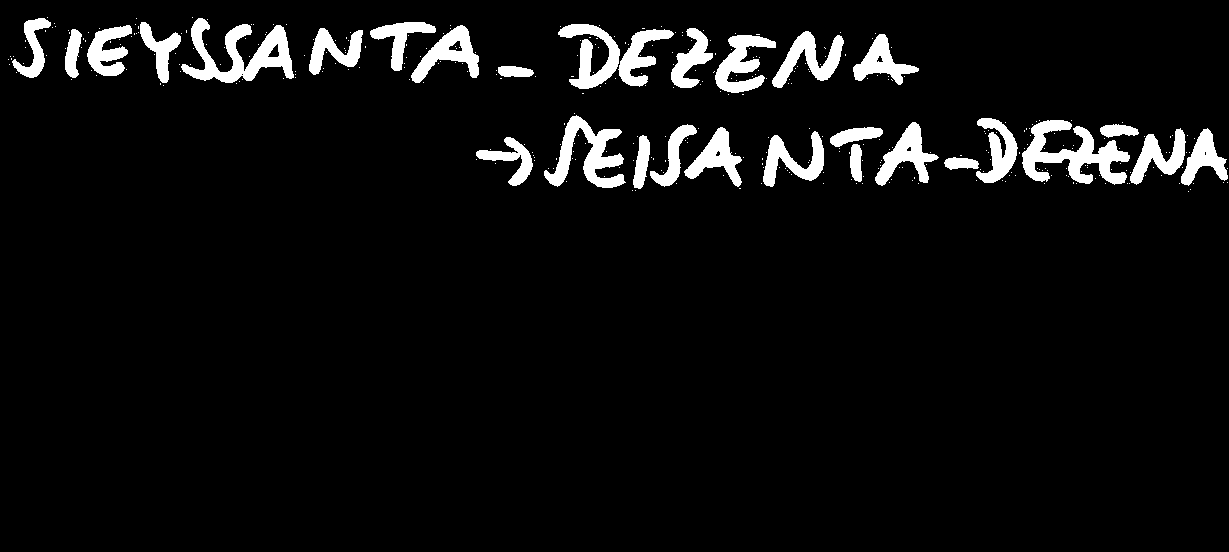 SIEYSSANTA-DEZENA
→ SEISANTA-DEZENA